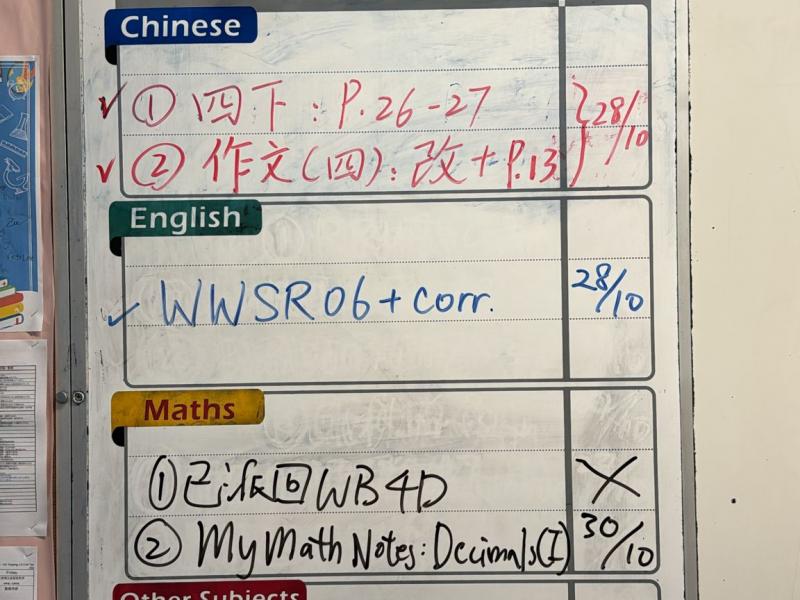 Chinese
✓ ① 四下：P.26-27 } 28/10
✓ ② 作文(四)：改+P.13
English
✓ WWSR06+corr. 28/10
Maths
① 已派回 WB4D ×
② My Math Notes: Decimals(I) 30/10
Other Subjects